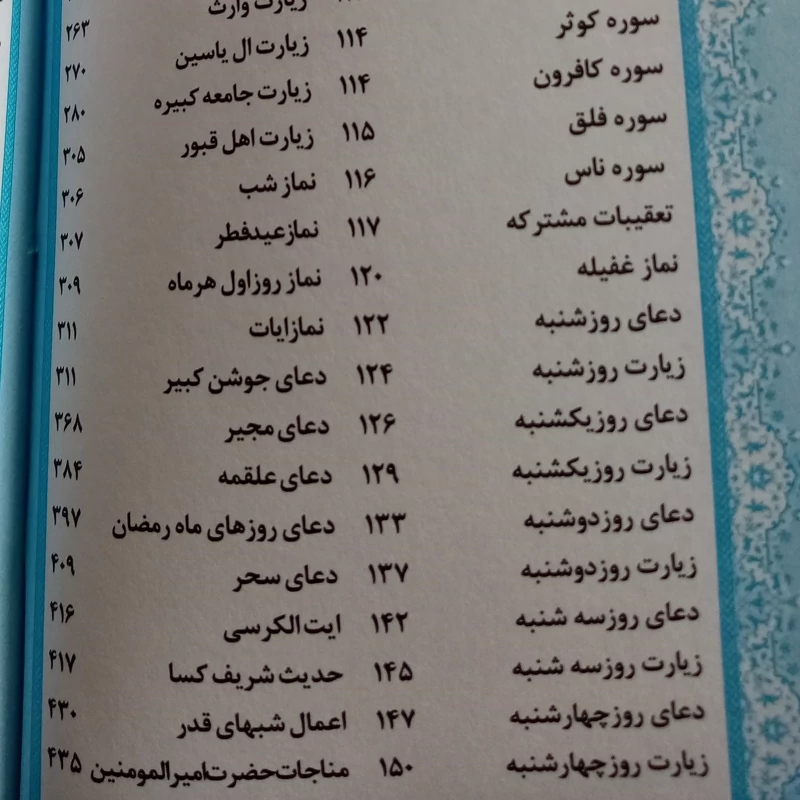 زیارت وارث ۲۶۳
سوره کوثر ۱۱۴
زیارت ال یاسین ۲۷۰
سوره کافرون ۱۱۴
زیارت جامعه کبیره ۲۸۰
سوره فلق ۱۱۵
زیارت اهل قبور ۳۰۵
سوره ناس ۱۱۶
نماز شب ۳۰۶
تعقیبات مشترکه ۱۱۷
نمازعیدفطر ۳۰۷
نماز غفیله ۱۲۰
نماز روزاول هرماه ۳۰۹
دعای روزشنبه ۱۲۲
نمازایات ۳۱۱
زیارت روزشنبه ۱۲۴
دعای جوشن کبیر ۳۱۱
دعای روزیکشنبه ۱۲۶
دعای مجیر ۳۶۸
زیارت روزیکشنبه ۱۲۹
دعای علقمه ۳۸۴
دعای روزدوشنبه ۱۳۳
دعای روزهای ماه رمضان ۳۹۷
زیارت روزدوشنبه ۱۳۷
دعای سحر ۴۰۹
دعای روزسه شنبه ۱۴۲
ایت الکرسی ۴۱۶
زیارت روزسه شنبه ۱۴۵
حدیث شریف کسا ۴۱۷
دعای روزچهارشنبه ۱۴۷
اعمال شبهای قدر ۴۳۰
زیارت روزچهارشنبه ۱۵۰
مناجات حضرت امیرالمومنین ۴۳۵